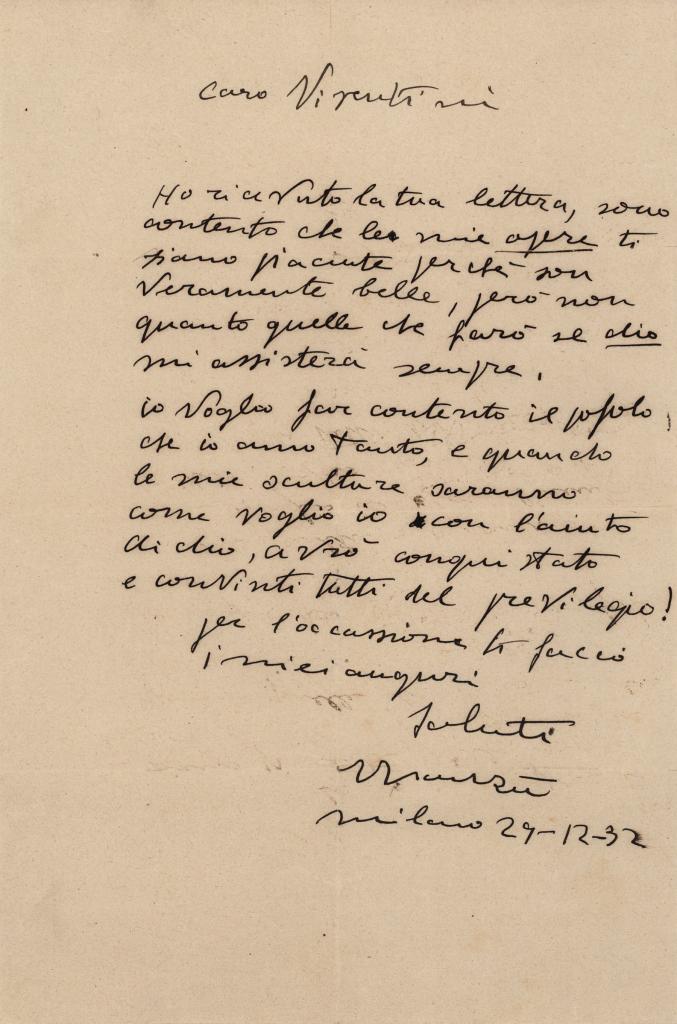 caro Visentini
Ho ricevuto la tua lettera, sono
contento che le mie opere ti
siano piaciute perché son
veramente belle, però non
quanto quelle che farò se dio
mi assisterà sempre.
io voglio far contento il popolo
che io amo tanto, e quando
le mie sculture saranno
come voglio io con l'aiuto
di dio, avrò conquistato
e convinti tutti del previlegio!
per l'occassione ti faccio
i miei auguri
Saluti
Manzù
Milano 29-12-32